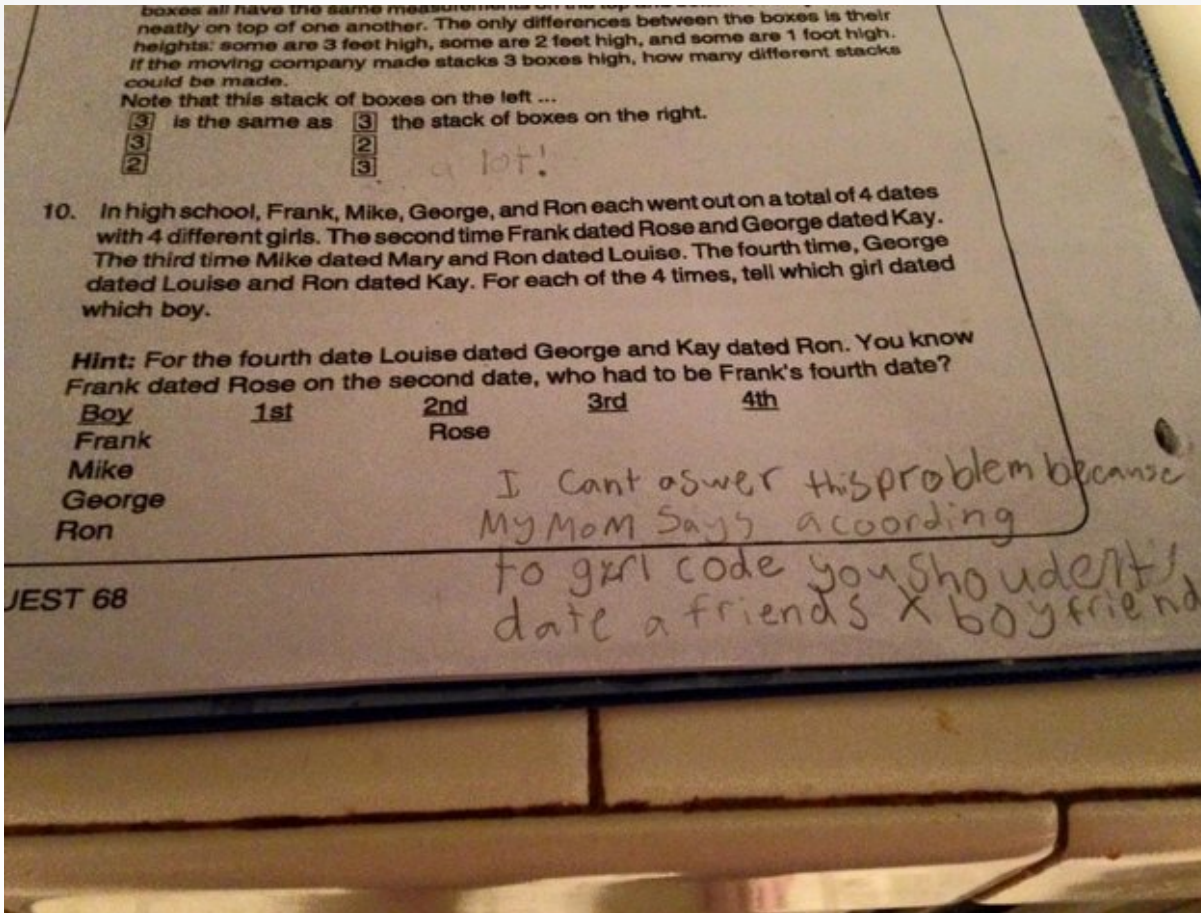 boxes all have the same measurements on the top and
neatly on top of one another. The only differences between the boxes is their
heights: some are 3 feet high, some are 2 feet high, and some are 1 foot high.
If the moving company made stacks 3 boxes high, how many different stacks
could be made.
Note that this stack of boxes on the left ...
3 is the same as 3 the stack of boxes on the right.
3 2
2 3 a lot!
10. In high school, Frank, Mike, George, and Ron each went out on a total of 4 dates
with 4 different girls. The second time Frank dated Rose and George dated Kay.
The third time Mike dated Mary and Ron dated Louise. The fourth time, George
dated Louise and Ron dated Kay. For each of the 4 times, tell which girl dated
which boy.
Hint: For the fourth date Louise dated George and Kay dated Ron. You know
Frank dated Rose on the second date, who had to be Frank's fourth date?
Boy 1st 2nd 3rd 4th
Frank Rose
Mike
George
Ron
I Cant aswer this problem because
My Mom Says acoording
to girl code you shoudent
date a friends X boyfriend
UEST 68